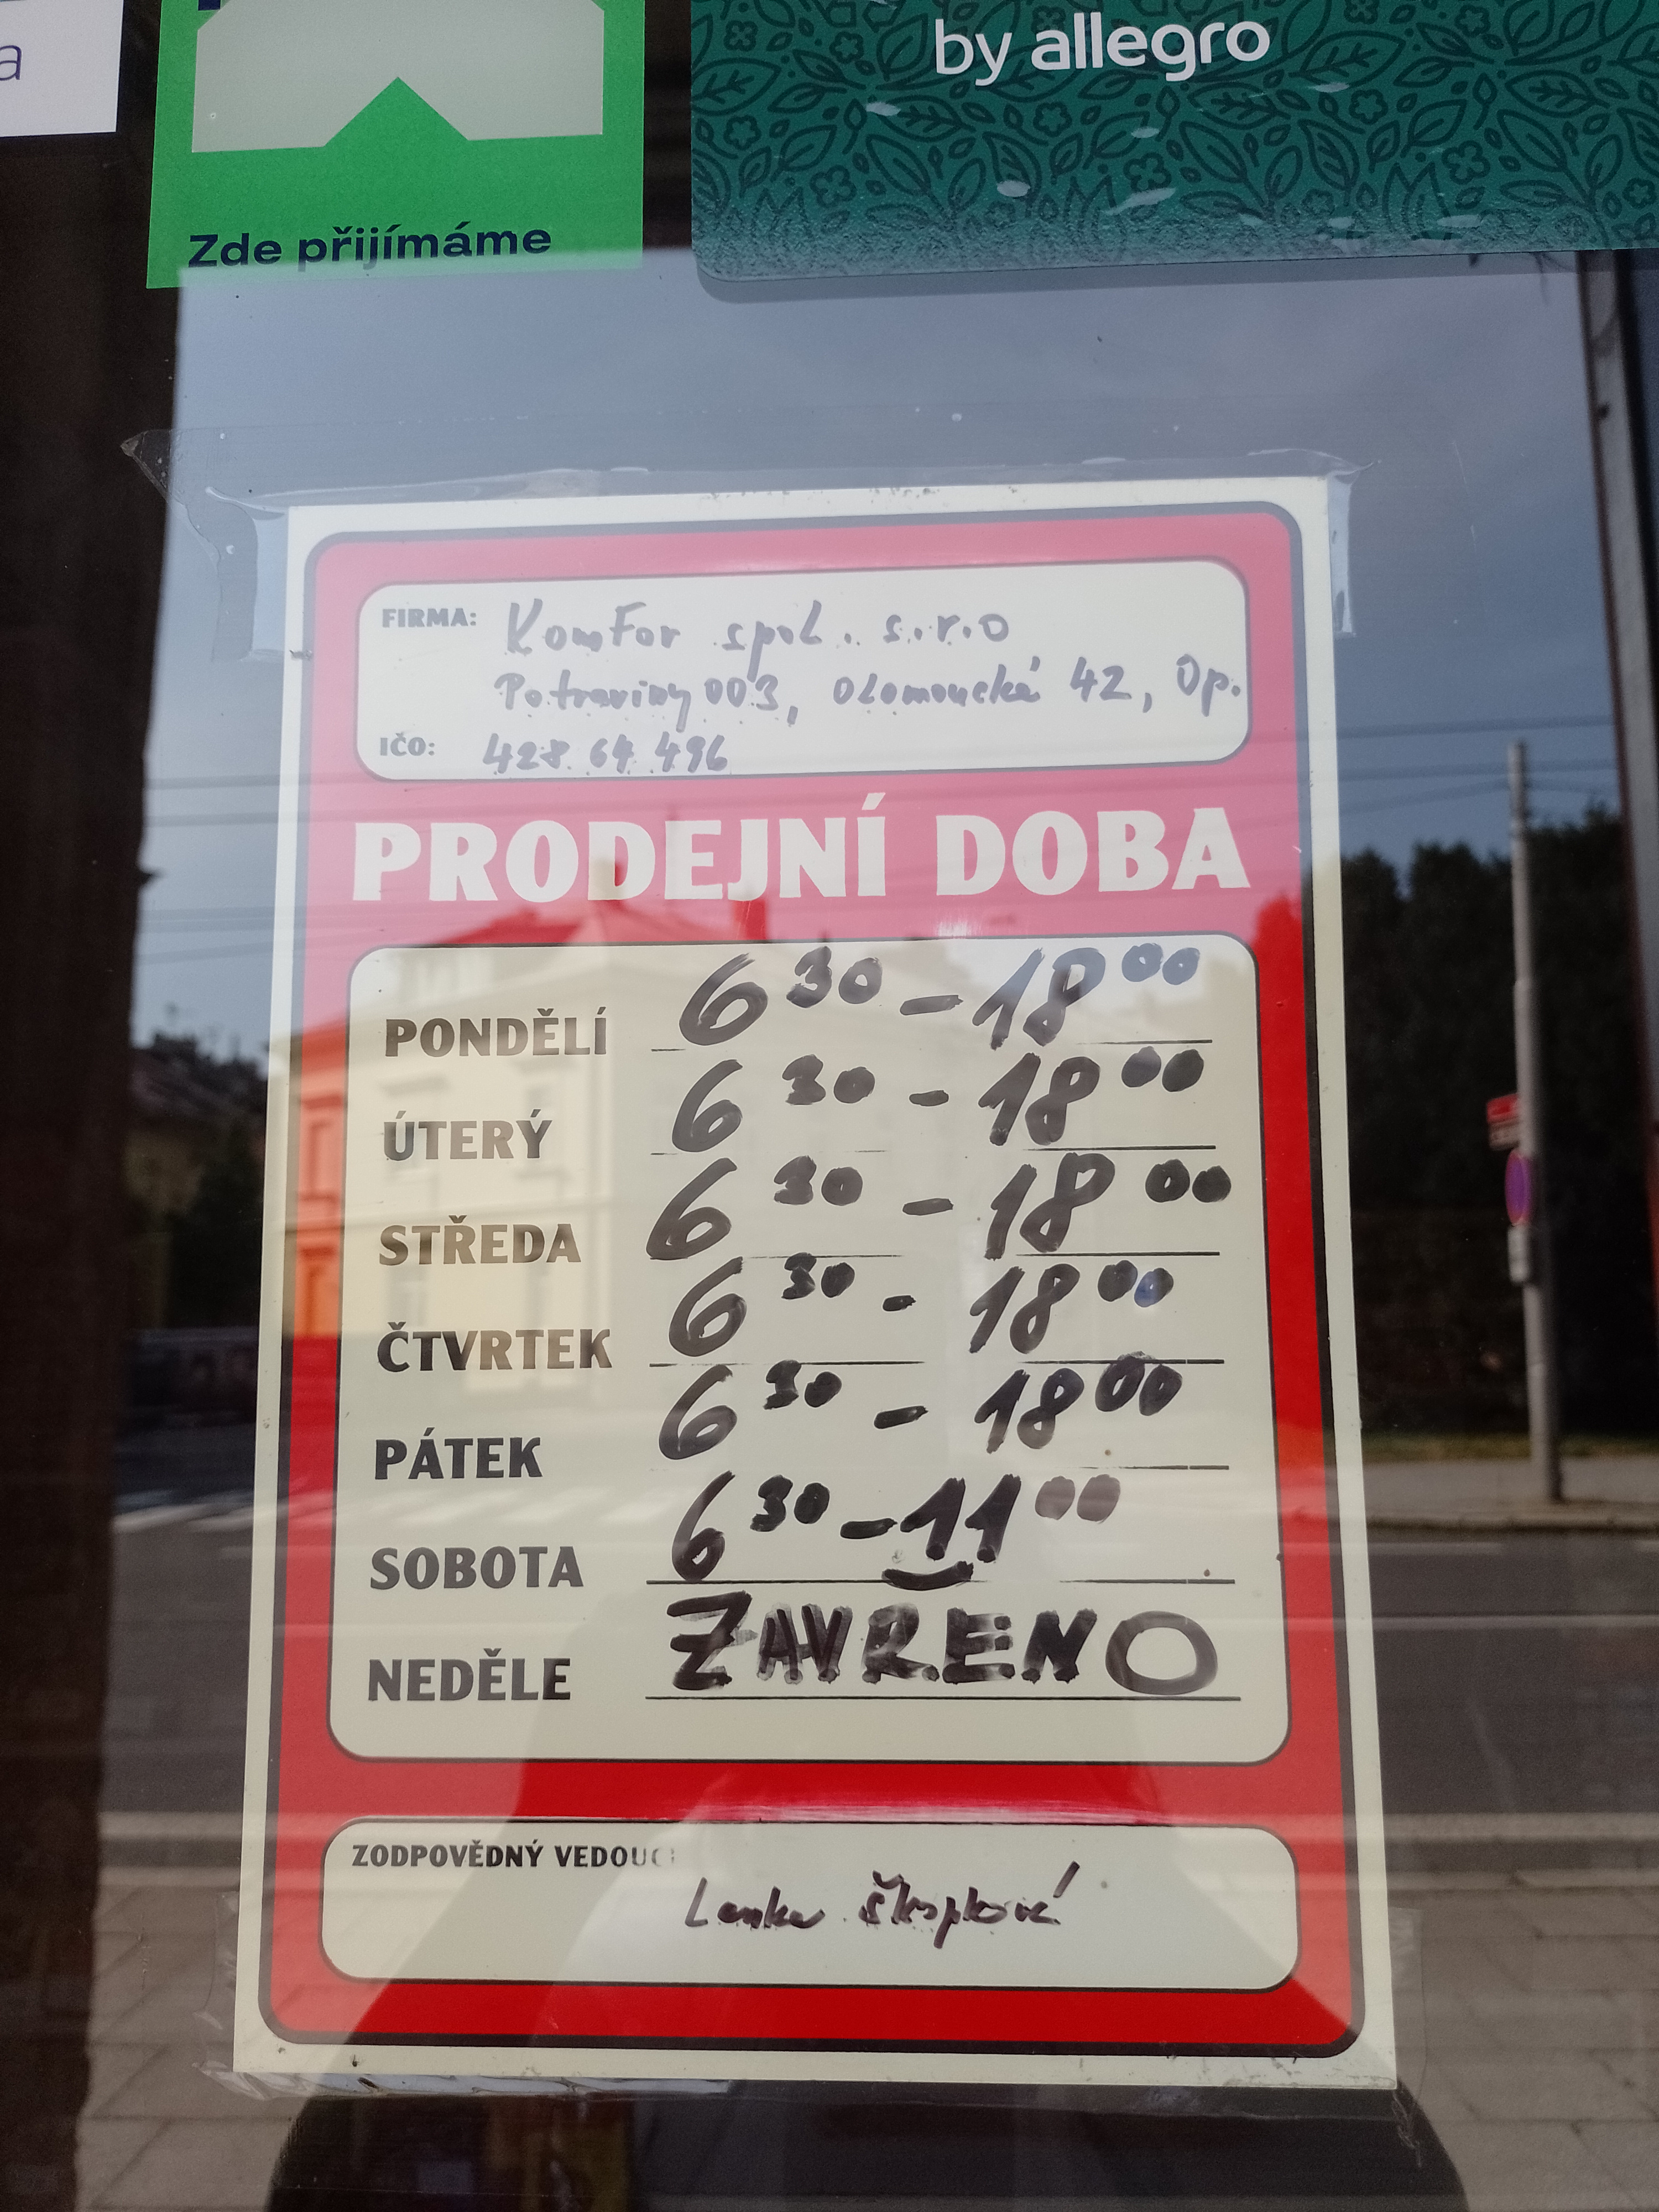 a
by allegro
Zde přijímáme
FIRMA: KomFor spol. s.r.o
Potraviny 003, Olomoucká 42, Op.
IČO: 428 64 496
PRODEJNÍ DOBA
PONDĚLÍ 6 30 - 18 00
ÚTERÝ 6 30 - 18 00
STŘEDA 6 30 - 18 00
ČTVRTEK 6 30 - 18 00
PÁTEK 6 30 - 18 00
SOBOTA 6 30 - 11 00
NEDĚLE ZAVŘENO
ZODPOVĚDNÝ VEDOUCÍ
Lenka